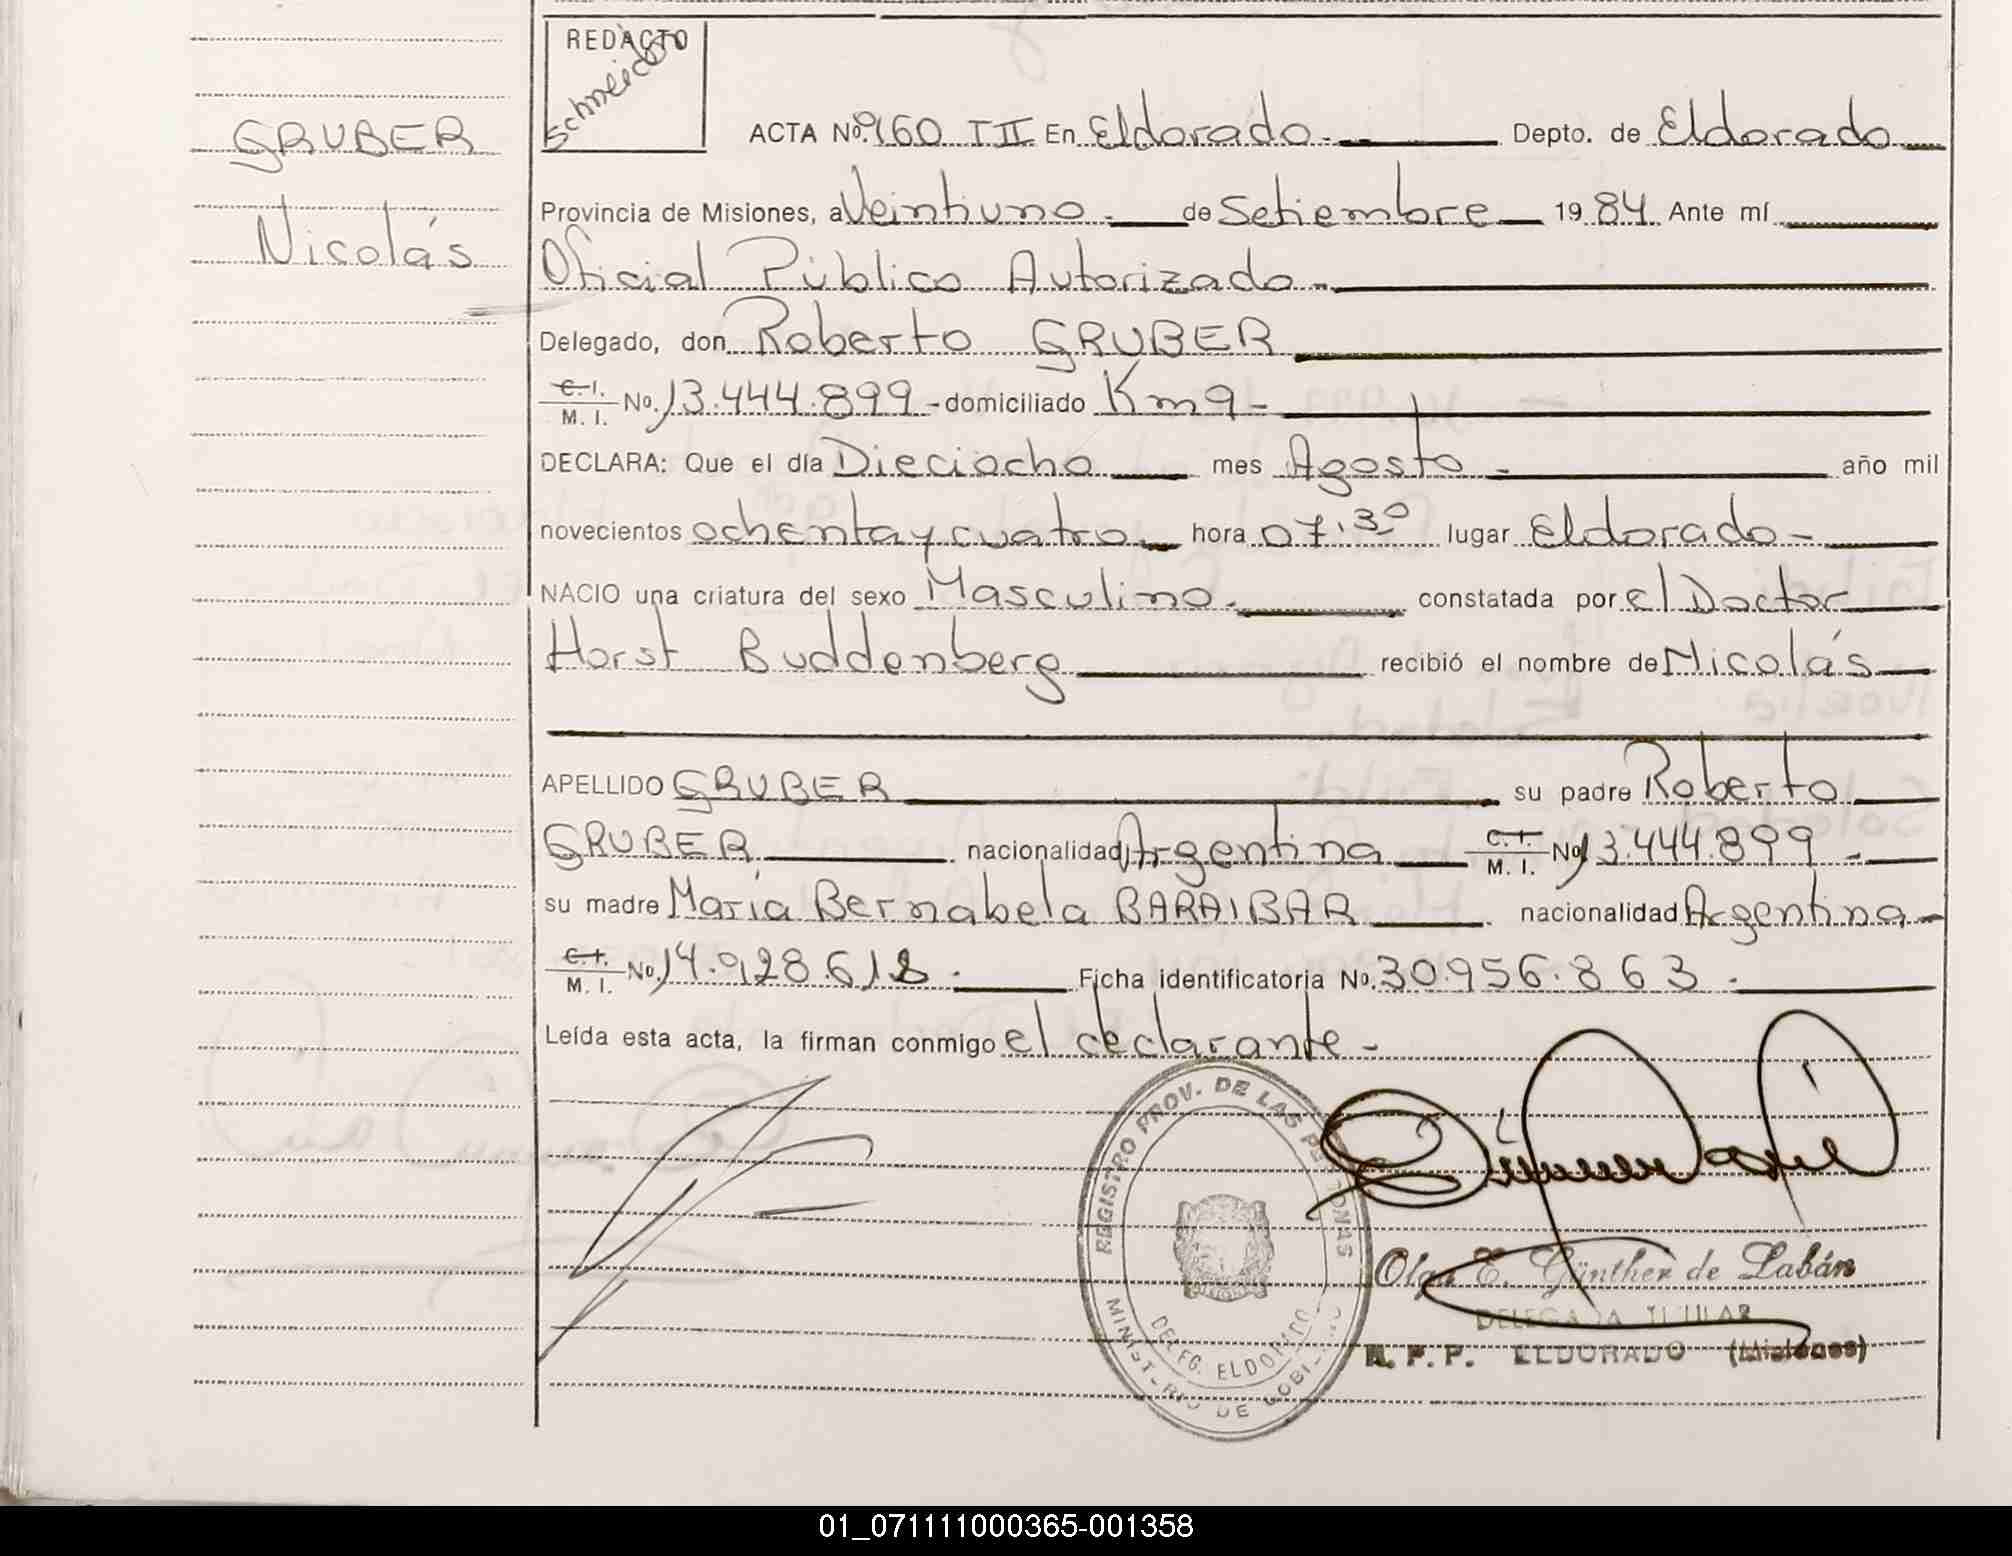 REDACTO
Schneider
GRUBER
Nicolás
ACTA Nº. 960 T II En Eldorado.- Depto. de Eldorado
Provincia de Misiones, a Veintiuno.- de Setiembre 19 84 Ante mí
Oficial Público Autorizado.-
Delegado, don Roberto GRUBER
C. I. / M. I. Nº. 13.444.899 - domiciliado Km 9-
DECLARA: Que el día Dieciocho mes Agosto - año mil
novecientos ochenta y cuatro hora 07.30 lugar Eldorado -
NACIO una criatura del sexo Masculino. constatada por el Doctor
Horst Buddenberg recibió el nombre de Nicolás
APELLIDO GRUBER su padre Roberto
GRUBER nacionalidad Argentina C. I. / M. I. Nº 13.444.899 -
su madre María Bernabela BARAIBAR nacionalidad Argentina
C. I. / M. I. Nº. 14.928.618 . Ficha identificatoria Nº. 30.956.863 -
Leída esta acta, la firman conmigo el declarante -
REGISTRO PROV. DE LAS PERSONAS
DELEG. ELDORADO
MINISTERIO DE GOBIERNO
Olga E. Günther de Labán
DELEGADA TITULAR
R. P. P. ELDORADO (Misiones)
01_071111000365-001358